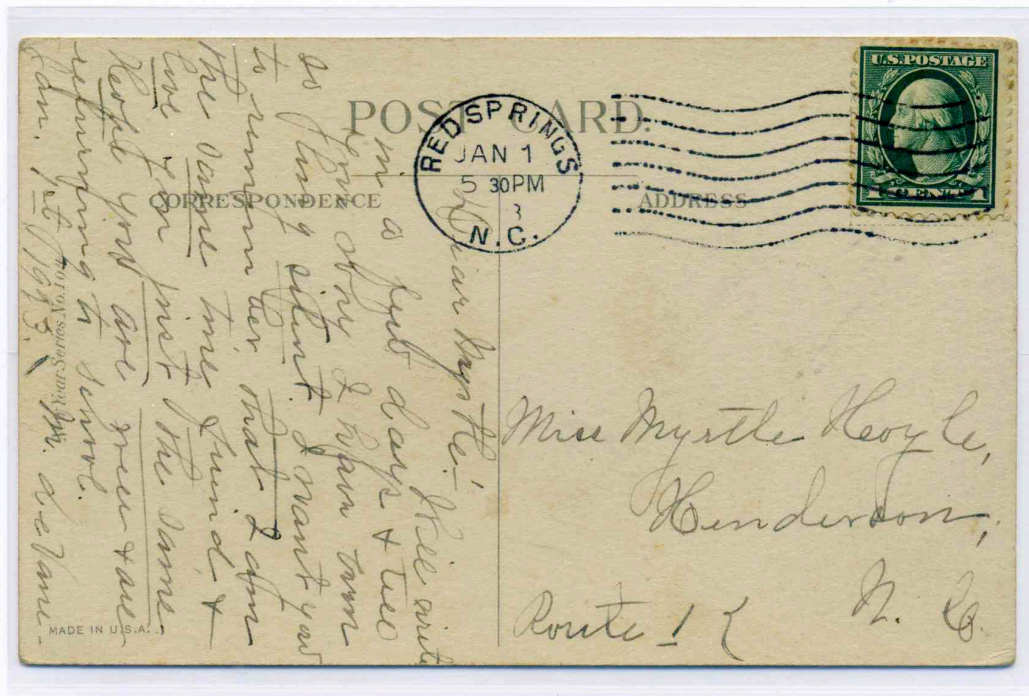 POST CARD.
CORRESPONDENCE
ADDRESS
RED SPRINGS
JAN 1
5 30PM
3
N.C.
U.S. POSTAGE
1 CENT 1
Dear Myrtle!
Will write
in a few days & tell
you why I have been
so long silent. I want you
to remember that I am
the same true friend, &
love you just the same.
Hope you are well & are
returning to school.
Jan. 1st, 1913.
Miss Myrtle Hoyle,
Henderson,
N. C.
Route 1
MADE IN U.S.A.